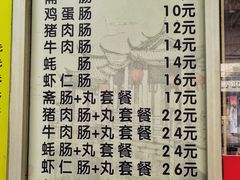 斋 肠
鸡蛋肠 10元
猪肉肠 12元
牛肉肠 14元
蚝 肠 14元
虾仁肠 16元
斋肠+丸套餐 17元
猪肉肠+丸套餐 22元
牛肉肠+丸套餐 24元
蚝肠+丸套餐 24元
虾仁肠+丸套餐 26元